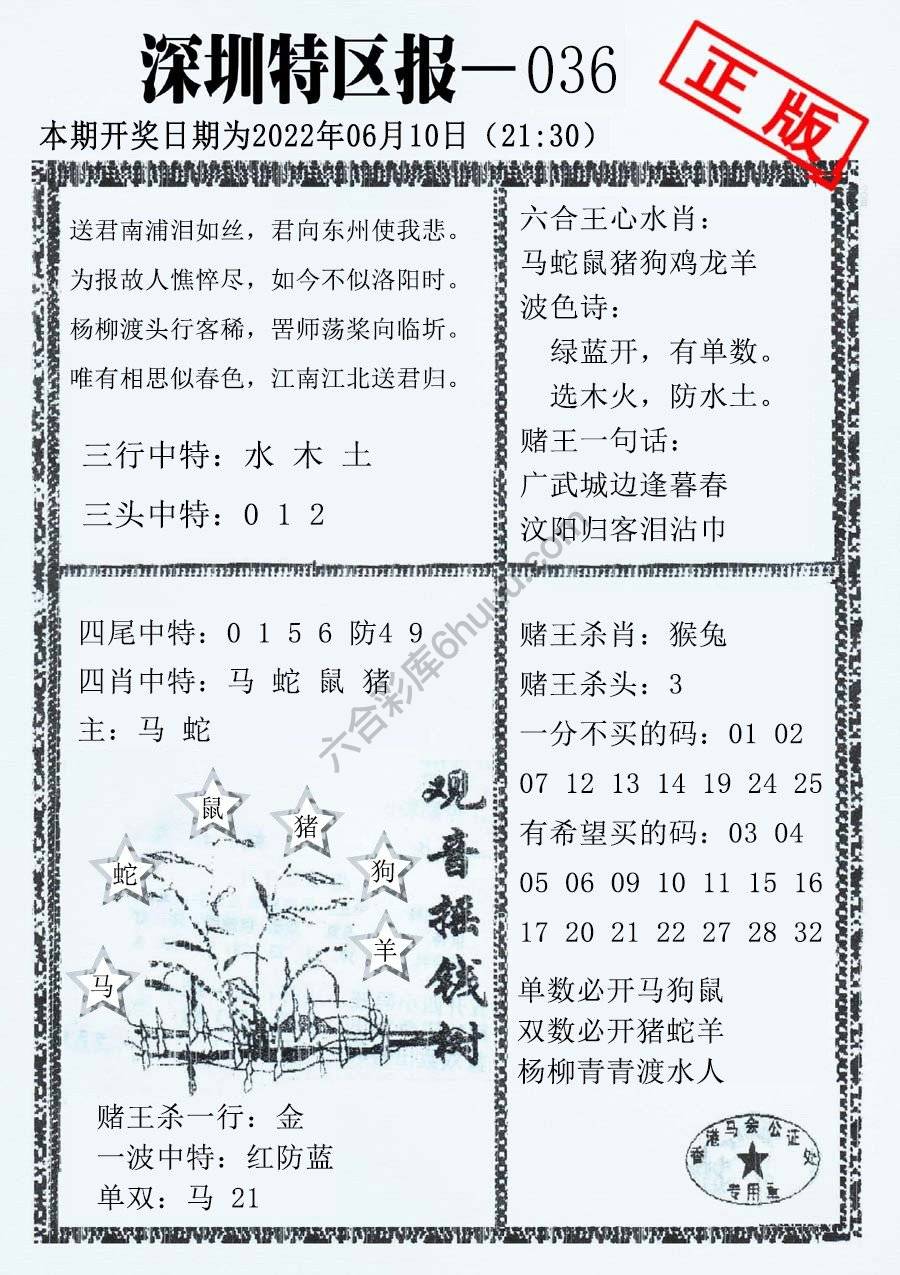 深圳特区报—036
正版
本期开奖日期为2022年06月10日（21:30）
送君南浦泪如丝，君向东州使我悲。
为报故人憔悴尽，如今不似洛阳时。
杨柳渡头行客稀，罟师荡桨向临圻。
唯有相思似春色，江南江北送君归。
三行中特：水 木 土
三头中特：0 1 2
六合王心水肖：
马蛇鼠猪狗鸡龙羊
波色诗：
绿蓝开，有单数。
选木火，防水土。
赌王一句话：
广武城边逢暮春
汶阳归客泪沾巾
四尾中特：0 1 5 6 防4 9
四肖中特：马 蛇 鼠 猪
主：马 蛇
鼠
猪
蛇
狗
羊
马
观音摇钱树
赌王杀一行：金
一波中特：红防蓝
单双：马 21
赌王杀肖：猴兔
赌王杀头：3
一分不买的码：01 02
07 12 13 14 19 24 25
有希望买的码：03 04
05 06 09 10 11 15 16
17 20 21 22 27 28 32
单数必开马狗鼠
双数必开猪蛇羊
杨柳青青渡水人
香港马会公证处
专用章
六合彩库6huuu.com